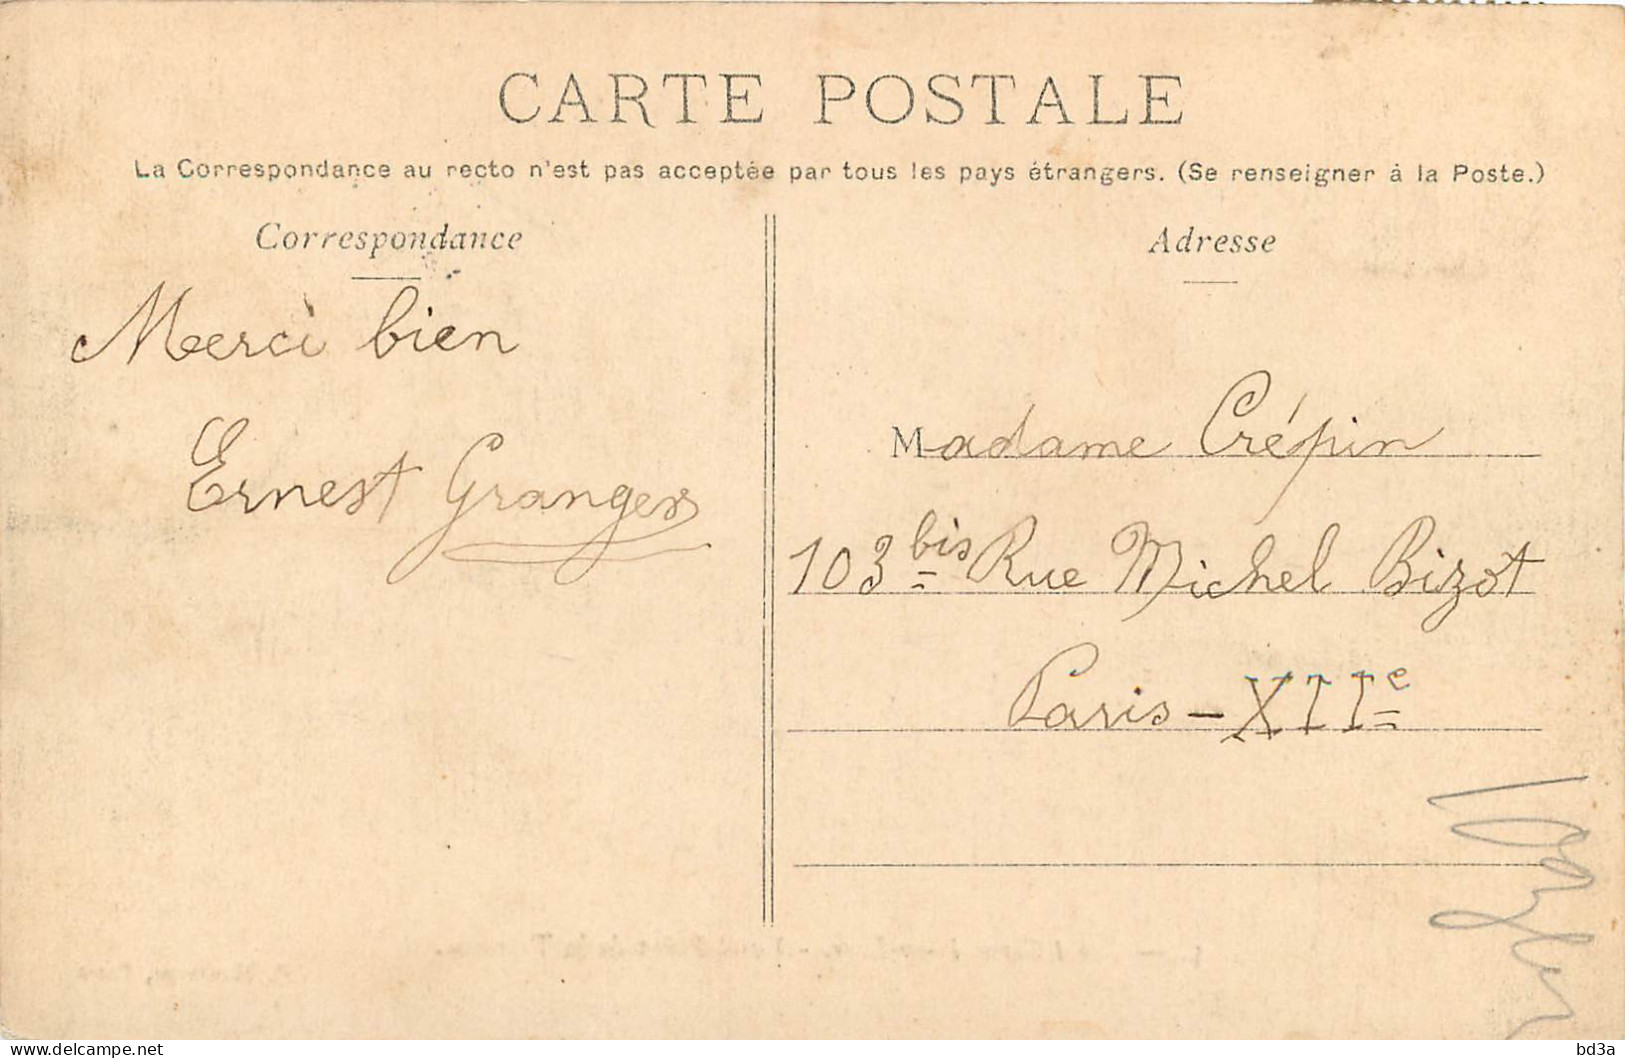 CARTE POSTALE
La Correspondance au recto n'est pas acceptée par tous les pays étrangers. (Se renseigner à la Poste.)
Correspondance
Merci bien
Ernest Granger
Adresse
Madame Crépin
103 bis Rue Michel Bizot
Paris - XIIe
bd3a